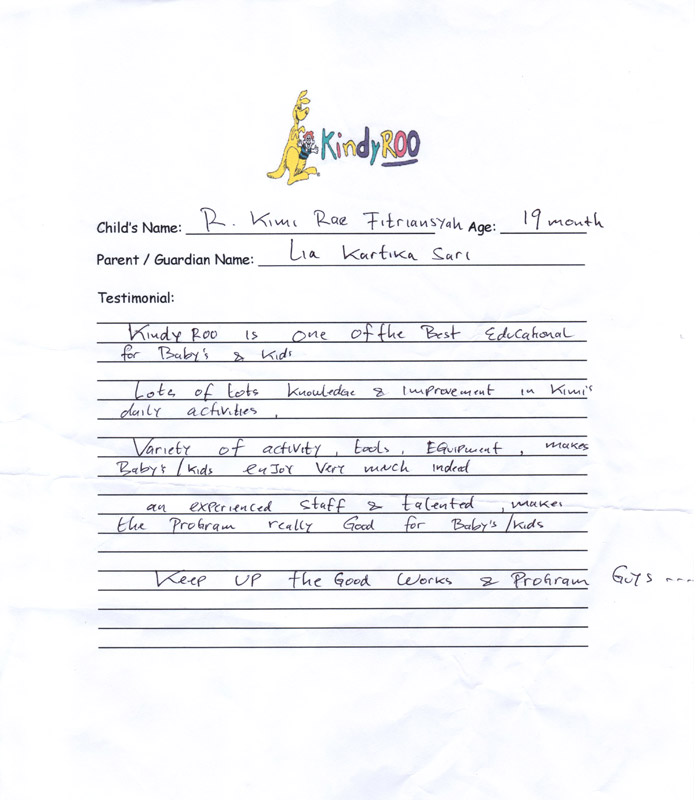 KindyROO
Child's Name: R. Kimi Rae Fitriansyah Age: 19 month
Parent / Guardian Name: Lia Kartika Sari
Testimonial:
Kindy Roo is one of the Best Educational
for Baby's & Kids
Lots of Lots knowledge & improvement in Kimi's
daily activities .
Variety of activity , tools , Equipment , makes
Baby's / kids enjoy very much indeed
an experienced staff & talented , makes
the Program really Good for Baby's / Kids
Keep up the Good Works & Program Guys ....